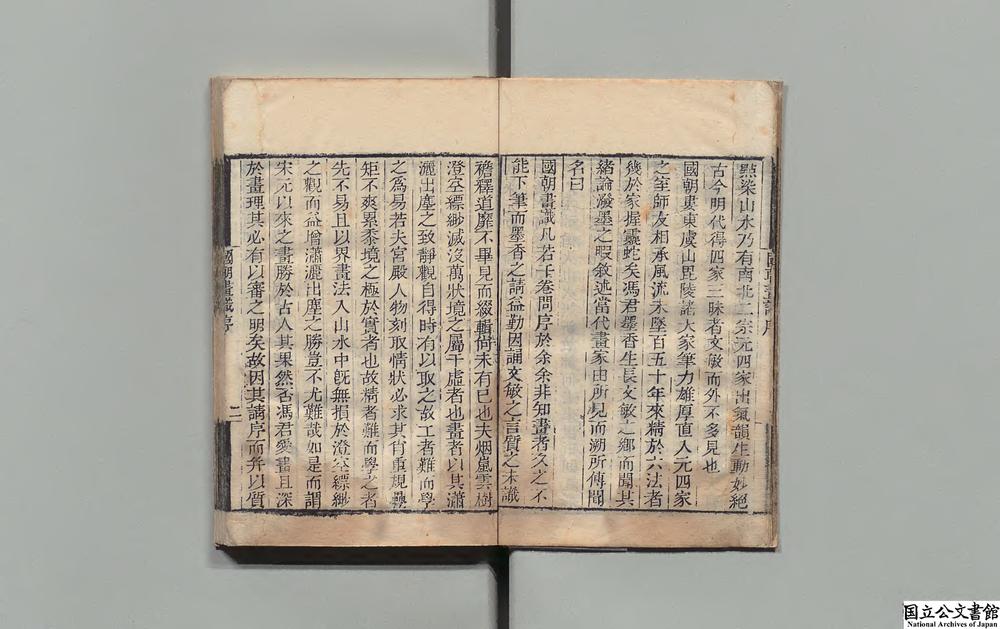 點染山水乃有南北二宗元四家出氣韻生動妙絕
古今明代得四家三昧者文敏而外不多見也
國朝婁東虞山毘陵諸大家筆力雄厚直入元四家
之室師友相承風流未墜百五十年來精於六法者
幾於家握靈蛇矣馮君墨香生長文敏之鄉而聞其
緒論潑墨之暇敘述當代畫家由所見而溯所傳聞
名曰
國朝畫識凡若干卷問序於余余非知畫者久之不
能下筆而墨香之請益勤因誦文敏之言質之未識
國朝畫識序
二
襜釋道靡不畢見而綴輯尙未有已也夫烟嵐雲樹
澄空縹緲滅沒萬狀境之屬于虛者也畫者以其瀟
灑出塵之致靜觀自得時有以取之故工者難而學
之爲易若夫宮殿人物刻取情狀必求其肖重規疊
矩不爽累黍境之極於實者也故精者難而學之者
先不易且以界畫法入山水中旣無損於澄空縹緲
之觀而益增瀟灑出塵之勝豈不尤難哉如是而謂
宋元以來之畫勝於古人其果然否馮君愛畫且深
於畫理其必有以審之明矣故因其請序而幷以質
國朝畫識序
国立公文書館
National Archives of Japan